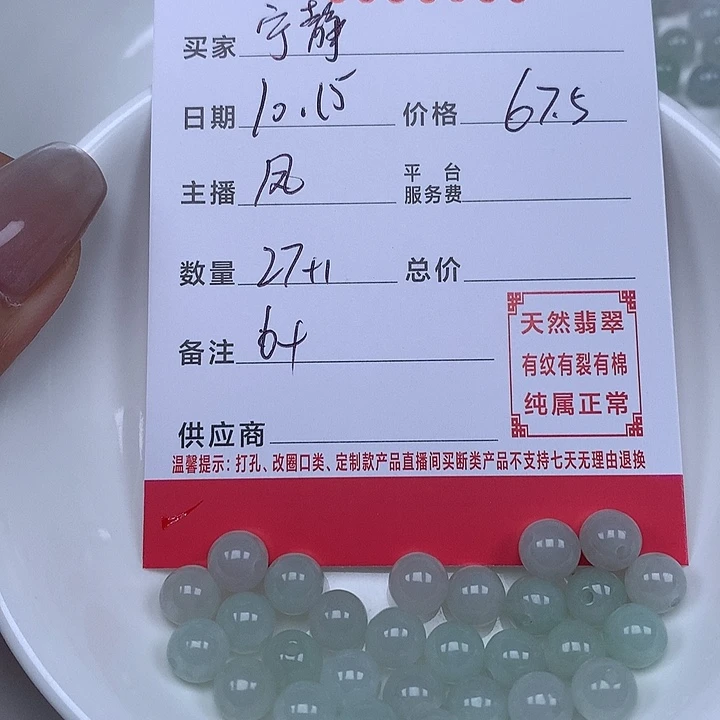 买家 宁静
日期 10.15 价格 67.5
主播 凤 平台服务费
数量 27+1 总价
备注 64
天然翡翠
有纹有裂有棉
纯属正常
供应商
温馨提示：打孔、改圈口类、定制款产品直播间买断类产品不支持七天无理由退换